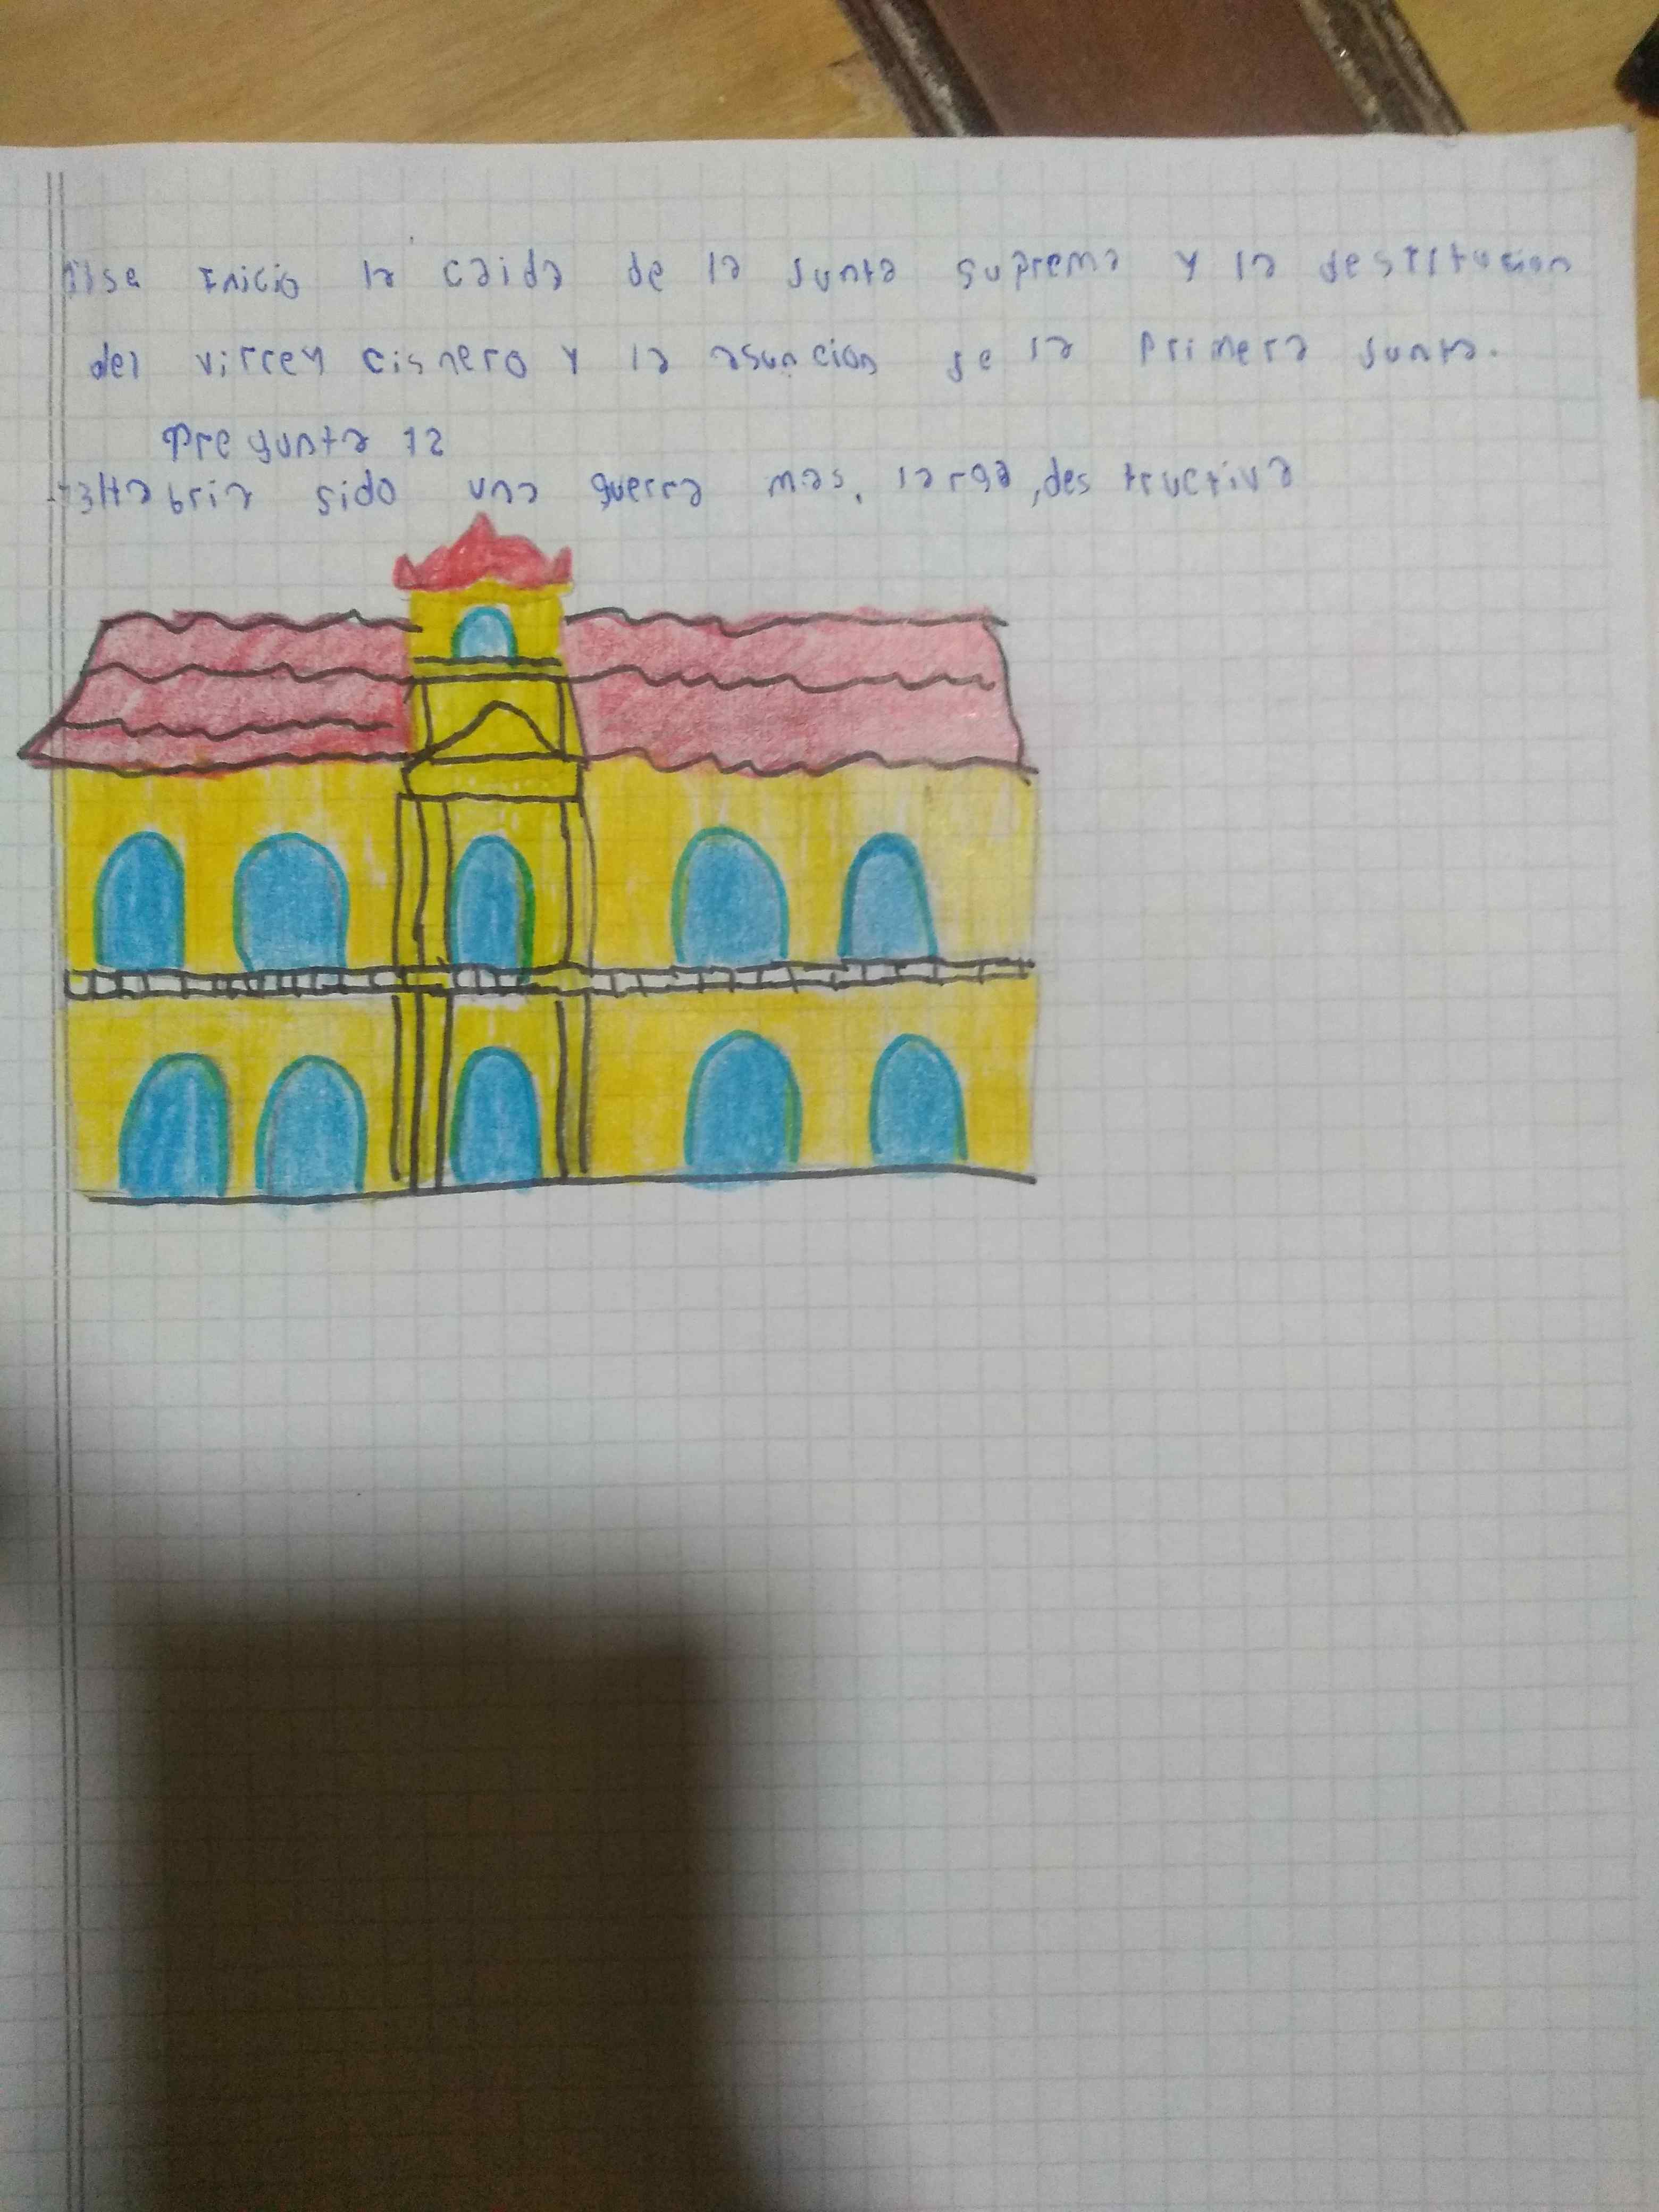 se inicio la caida de la Junta suprema y la destitucion
del virrey cisnero y la asuncion de la Primera Junta.
Pregunta 12
Habria sido una guerra mas, larga, destructiva